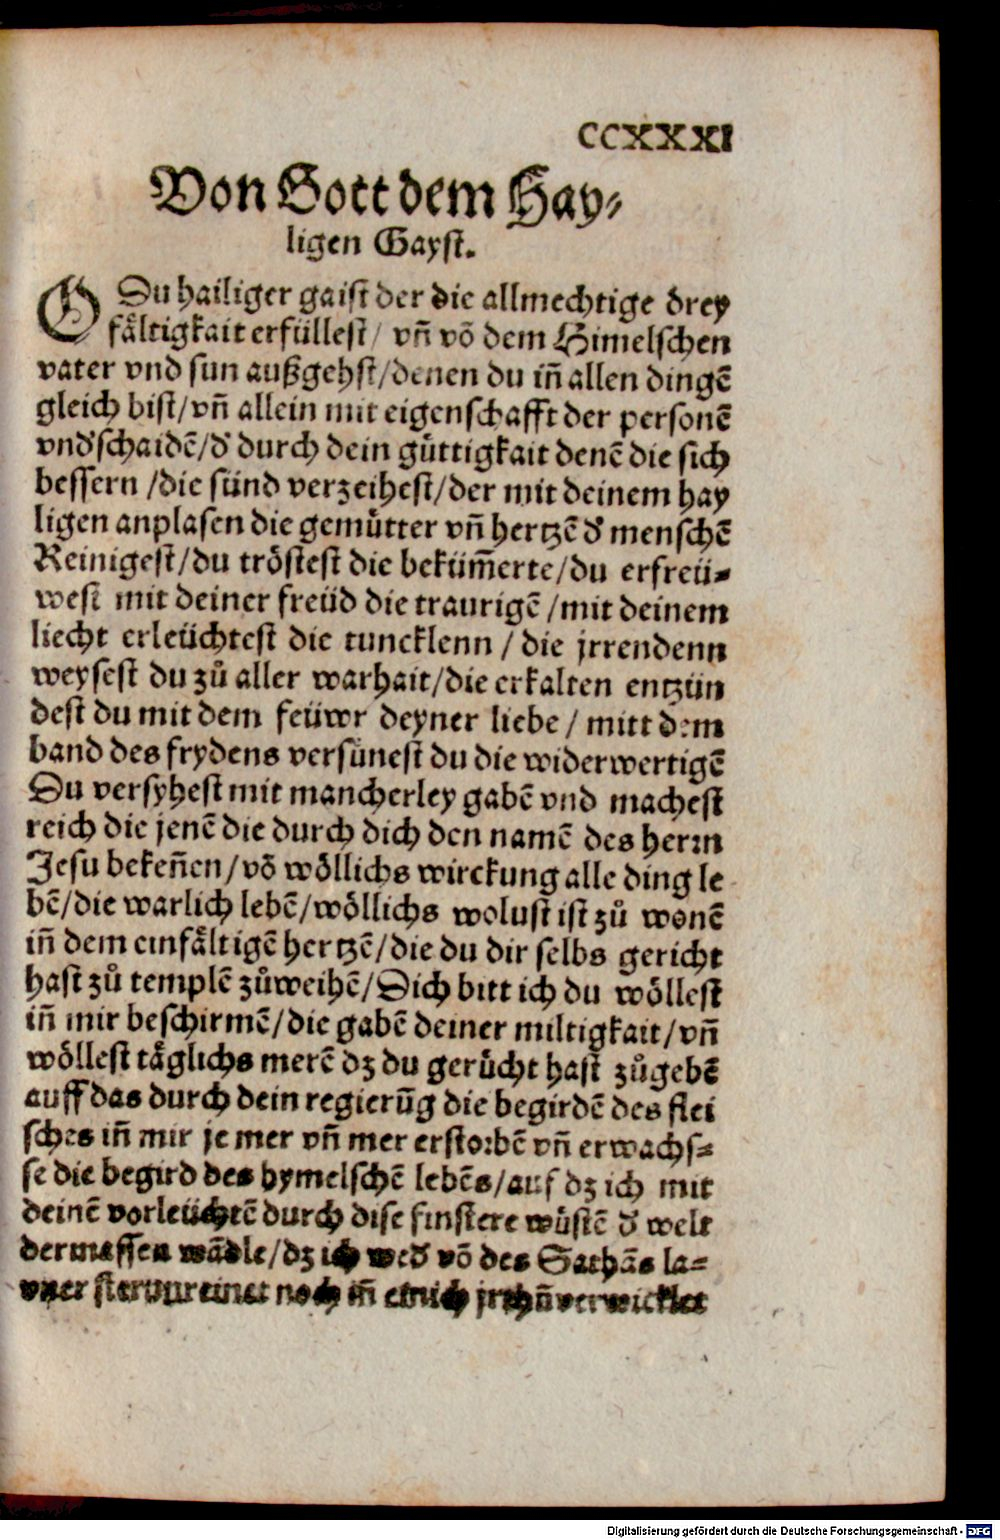 CCXXXI
Von Gott dem Hay⸗
ligen Gayst.
O Du hailiger gaist der die allmechtige drey
fältigkait erfüllest / vn̄ vō dem Himelschen
vater vnd sun außgehst / denen du in̄ allen dingē
gleich bist / vn̄ allein mit eigenschafft der personē
vnd'schaidē / d' durch dein gůttigkait denē die sich
bessern / die sünd verzeihest / der mit deinem hay
ligen anplasen die gemůtter vn̄ hertzē d' menschē
Reinigest / du tröstest die beküm̄erte / du erfreü⸗
west mit deiner freüd die traurigē / mit deinem
liecht erleüchtest die tuncklenn / die jrrendenn
weysest du zů aller warhait / die erkalten entzün
dest du mit dem feüwr deyner liebe / mitt dem
band des frydens versünest du die widerwertigē
Du versyhest mit mancherley gabē vnd machest
reich die jenē die durch dich den namē des herrn
Jesu beken̄en / vō wöllichs wirckung alle ding le
bē / die warlich lebē / wöllichs wolust ist zů wonē
in̄ dem einfältigē hertzē / die du dir selbs gericht
hast zů templē zůweihē / Dich bitt ich du wöllest
in̄ mir beschirmē / die gabē deiner miltigkait / vn̄
wöllest täglichs merē dz du gerůcht hast zůgebē
auff das durch dein regierūg die begirdē des flei
sches in̄ mir je mer vn̄ mer erstorbē vn̄ erwachs⸗
se die begird des hymelschē lebēs / auf dz ich mit
deinē vorleüchtē durch dise finstere wůstē d' welt
dermassen wādle / dz ich wed' vō des Sathās la⸗
ster vnreinet noch in̄ jrthū verwicklet
Digitalisierung gefördert durch die Deutsche Forschungsgemeinschaft - DFG